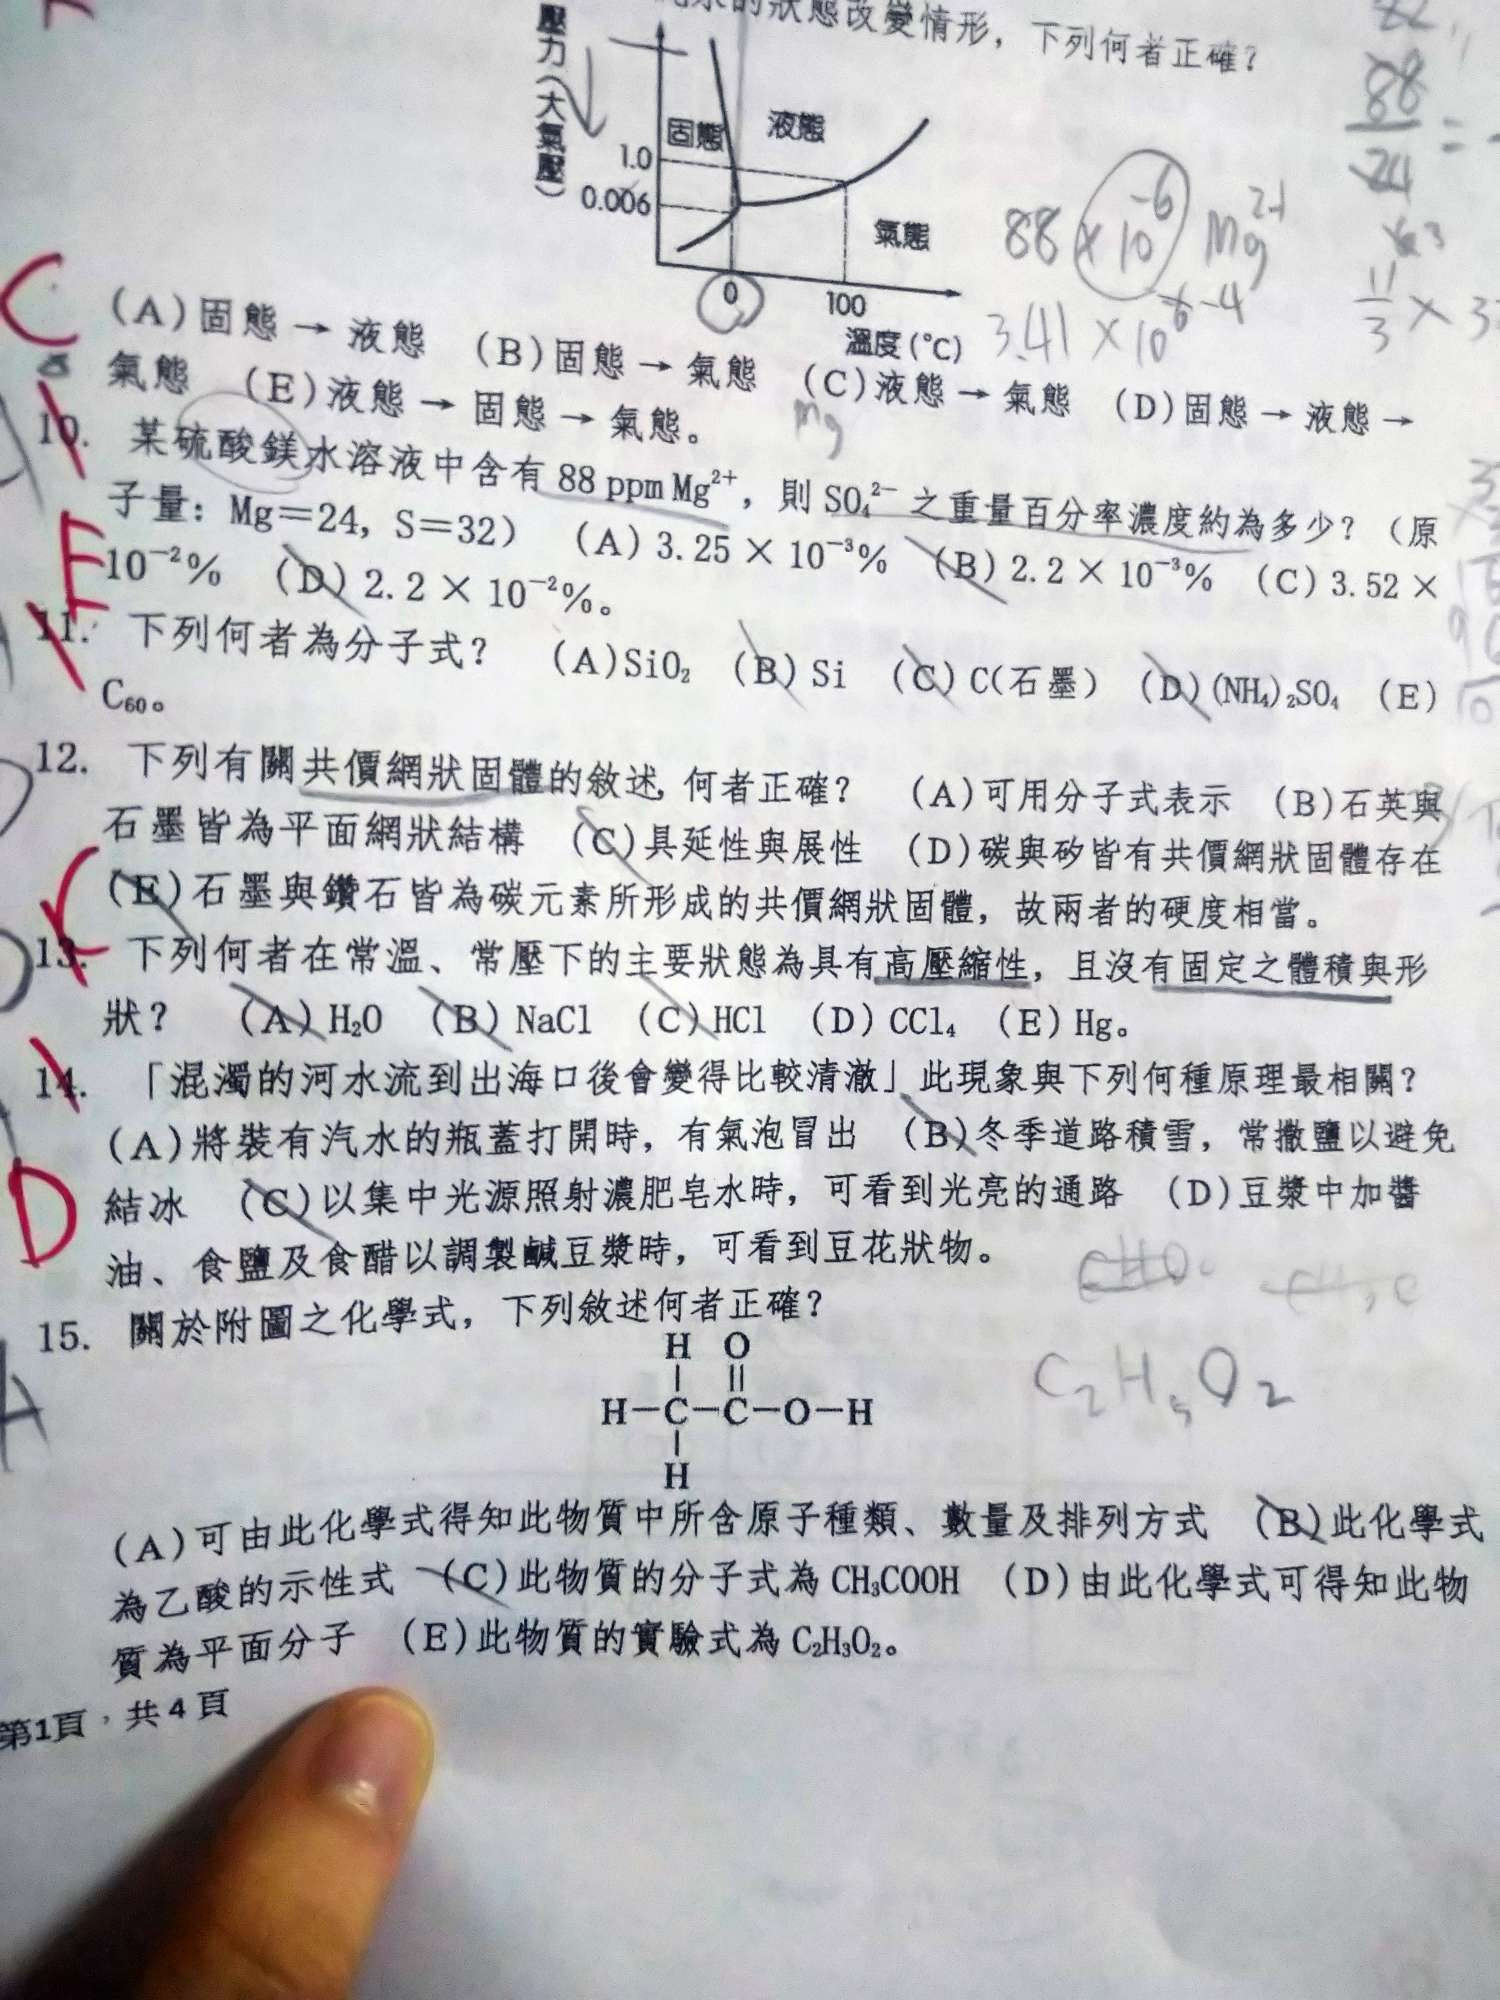 的狀態改變情形，下列何者正確？
壓力(大氣壓)
固態
液態
1.0
0.006
氣態
0
100
溫度(℃)
88 × 10⁻⁶ Mg²⁺
88
24
=
3.41 × 10
11
3
× 3
C
(A)固態→液態 (B)固態→氣態 (C)液態→氣態 (D)固態→液態→
氣態 (E)液態→固態→氣態。
Mg
10. 某硫酸鎂水溶液中含有 88 ppm Mg²⁺，則 SO₄²⁻ 之重量百分率濃度約為多少？（原
子量：Mg＝24，S＝32） (A) 3.25 × 10⁻³% (B) 2.2 × 10⁻³% (C) 3.52 ×
10⁻²% (D) 2.2 × 10⁻²%。
E
11. 下列何者為分子式？ (A)SiO₂ (B)Si (C)C(石墨) (D)(NH₄)₂SO₄ (E)
C₆₀。
12. 下列有關共價網狀固體的敘述，何者正確？ (A)可用分子式表示 (B)石英與
石墨皆為平面網狀結構 (C)具延性與展性 (D)碳與矽皆有共價網狀固體存在
(E)石墨與鑽石皆為碳元素所形成的共價網狀固體，故兩者的硬度相當。
C
13. 下列何者在常溫、常壓下的主要狀態為具有高壓縮性，且沒有固定之體積與形
狀？ (A)H₂O (B)NaCl (C)HCl (D)CCl₄ (E)Hg。
14. 「混濁的河水流到出海口後會變得比較清澈」此現象與下列何種原理最相關？
(A)將裝有汽水的瓶蓋打開時，有氣泡冒出 (B)冬季道路積雪，常撒鹽以避免
結冰 (C)以集中光源照射濃肥皂水時，可看到光亮的通路 (D)豆漿中加醬
油、食鹽及食醋以調製鹹豆漿時，可看到豆花狀物。
D
15. 關於附圖之化學式，下列敘述何者正確？
H O
H－C－C－O－H
H
C₂H₅O₂
A
(A)可由此化學式得知此物質中所含原子種類、數量及排列方式 (B)此化學式
為乙酸的示性式 (C)此物質的分子式為 CH₃COOH (D)由此化學式可得知此物
質為平面分子 (E)此物質的實驗式為 C₂H₃O₂。
第1頁，共4頁